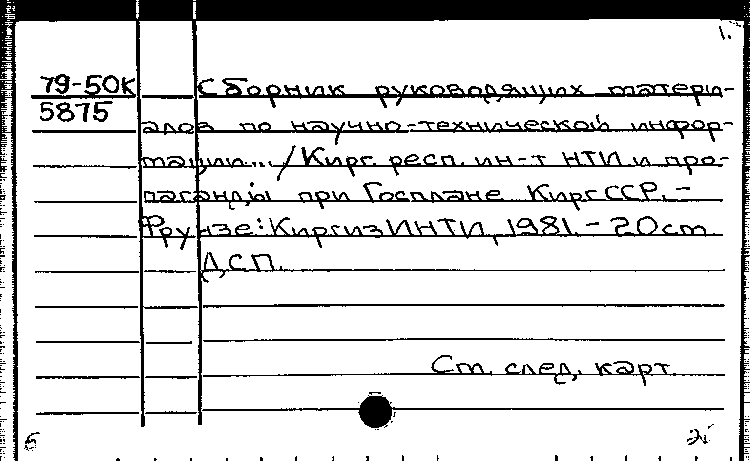 1.
79-50К Сборник руководящих матери-
5875
алов по научно-технической инфор-
мации... / Кирг. респ. ин-т НТИ и про-
паганды при Госплане КиргССР. -
Фрунзе: КиргизИНТИ, 1981. - 20 cm
ДСП.
Ст. след. карт.
Б